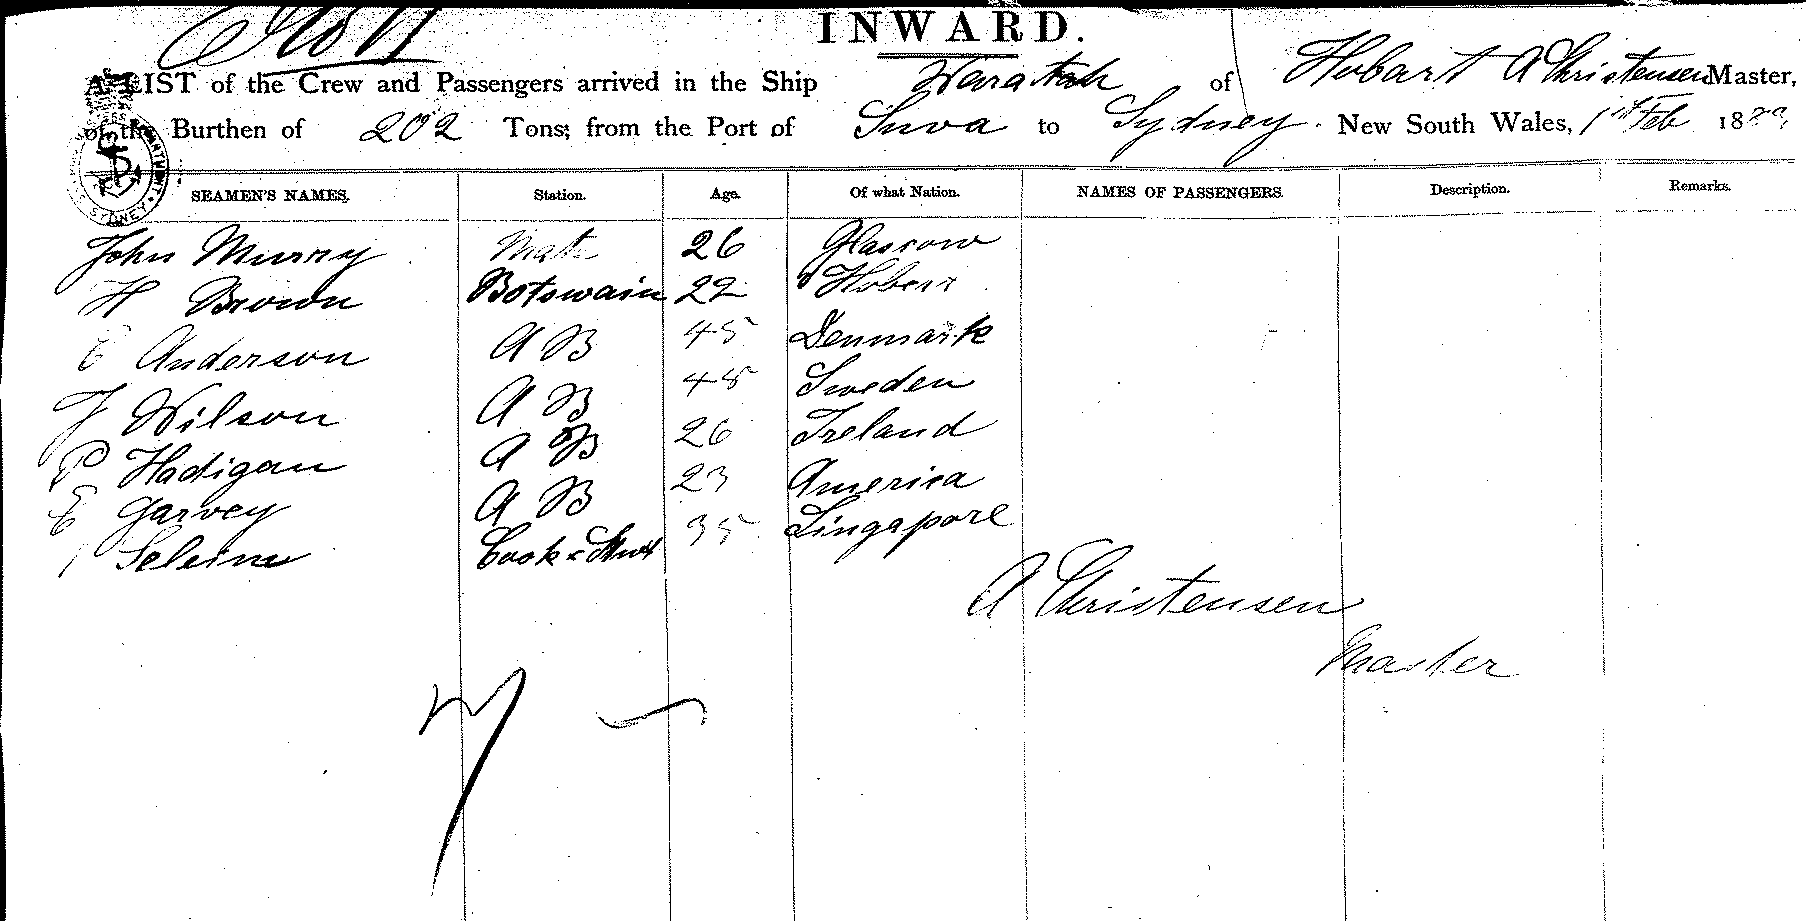 INWARD.
A LIST of the Crew and Passengers arrived in the Ship Waratah of Hobart A Christensen Master,
of the Burthen of 202 Tons; from the Port of Suva to Sydney. New South Wales, 1st Feb 1889
SEAMEN'S NAMES. Station. Age. Of what Nation. NAMES OF PASSENGERS. Description. Remarks.
John Murry Mate 26 Glascow
H Brown Botswain 22 Hobart
E Anderson A B 45 Denmark
J Wilson A B 48 Sweden
P Hadigan A B 26 Ireland
E Garvey A B 23 America
Seleine Cook & Stwd 35 Singapore
A Christensen
Master
SYDNEY